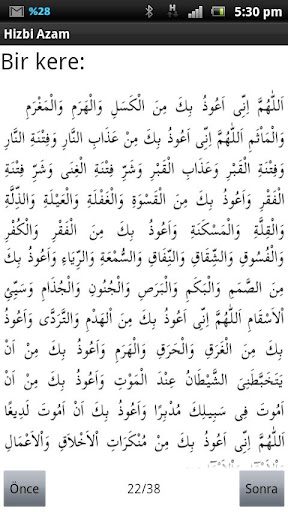 %28
H
5:30 pm
Hizbi Azam
Bir kere:
اَللّٰهُمَّ اِنِّى اَعُوذُ بِكَ مِنَ الْكَسَلِ وَالْهَرَمِ وَالْمَغْرَمِ
وَالْمَأْثَمِ اَللّٰهُمَّ اِنِّى اَعُوذُ بِكَ مِنْ عَذَابِ النَّارِ وَفِتْنَةِ النَّارِ
وَفِتْنَةِ الْقَبْرِ وَعَذَابِ الْقَبْرِ وَشَرِّ فِتْنَةِ الْغِنَى وَشَرِّ فِتْنَةِ
الْفَقْرِ وَاَعُوذُ بِكَ مِنَ الْقَسْوَةِ وَالْغَفْلَةِ وَالْعَيْلَةِ وَالذِّلَّةِ
وَالْقِلَّةِ وَالْمَسْكَنَةِ وَاَعُوذُ بِكَ مِنَ الْفَقْرِ وَالْكُفْرِ
وَالْفُسُوقِ وَالشِّقَاقِ وَالنِّفَاقِ وَالسُّمْعَةِ وَالرِّيَاءِ وَاَعُوذُ بِكَ
مِنَ الصَّمَمِ وَالْبَكَمِ وَالْبَرَصِ وَالْجُنُونِ وَالْجُذَامِ وَسَيِّئِ
الْاَسْقَامِ اَللّٰهُمَّ اِنِّى اَعُوذُ بِكَ مِنَ الْهَدْمِ وَالتَّرَدِّى وَاَعُوذُ
بِكَ مِنَ الْغَرَقِ وَالْحَرَقِ وَالْهَرَمِ وَاَعُوذُ بِكَ مِنْ اَنْ
يَتَخَبَّطَنِىَ الشَّيْطَانُ عِنْدَ الْمَوْتِ وَاَعُوذُ بِكَ مِنْ اَنْ
اَمُوتَ فِى سَبِيلِكَ مُدْبِرًا وَاَعُوذُ بِكَ اَنْ اَمُوتَ لَدِيغًا
اَللّٰهُمَّ اِنِّى اَعُوذُ بِكَ مِنْ مُنْكَرَاتِ الْاَخْلَاقِ وَالْاَعْمَالِ
Önce
22/38
Sonra